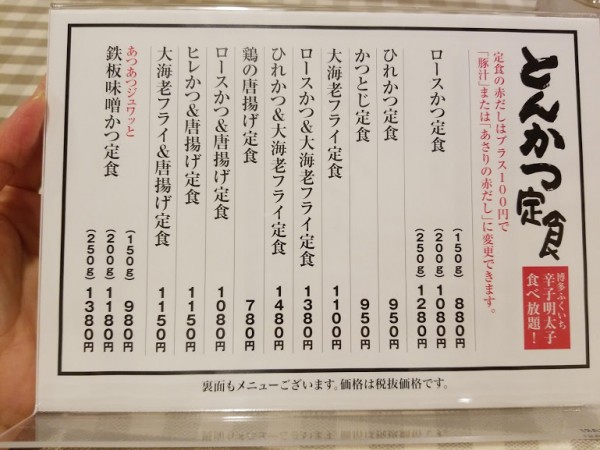 とんかつ定食
博多ふくいち
辛子明太子
食べ放題!
定食の赤だしはプラス100円で
「豚汁」または「あさりの赤だし」に変更できます。
ロースかつ定食
(150g) 880円
(200g) 1080円
(250g) 1280円
ひれかつ定食 950円
かつとじ定食 950円
大海老フライ定食 1100円
ロースかつ&大海老フライ定食 1380円
ひれかつ&大海老フライ定食 1480円
鶏の唐揚げ定食 780円
ロースかつ&唐揚げ定食 1080円
ヒレかつ&唐揚げ定食 1150円
大海老フライ&唐揚げ定食 1150円
あつあつジュワッと
鉄板味噌かつ定食
(150g) 980円
(200g) 1180円
(250g) 1380円
裏面もメニューございます。価格は税抜価格です。